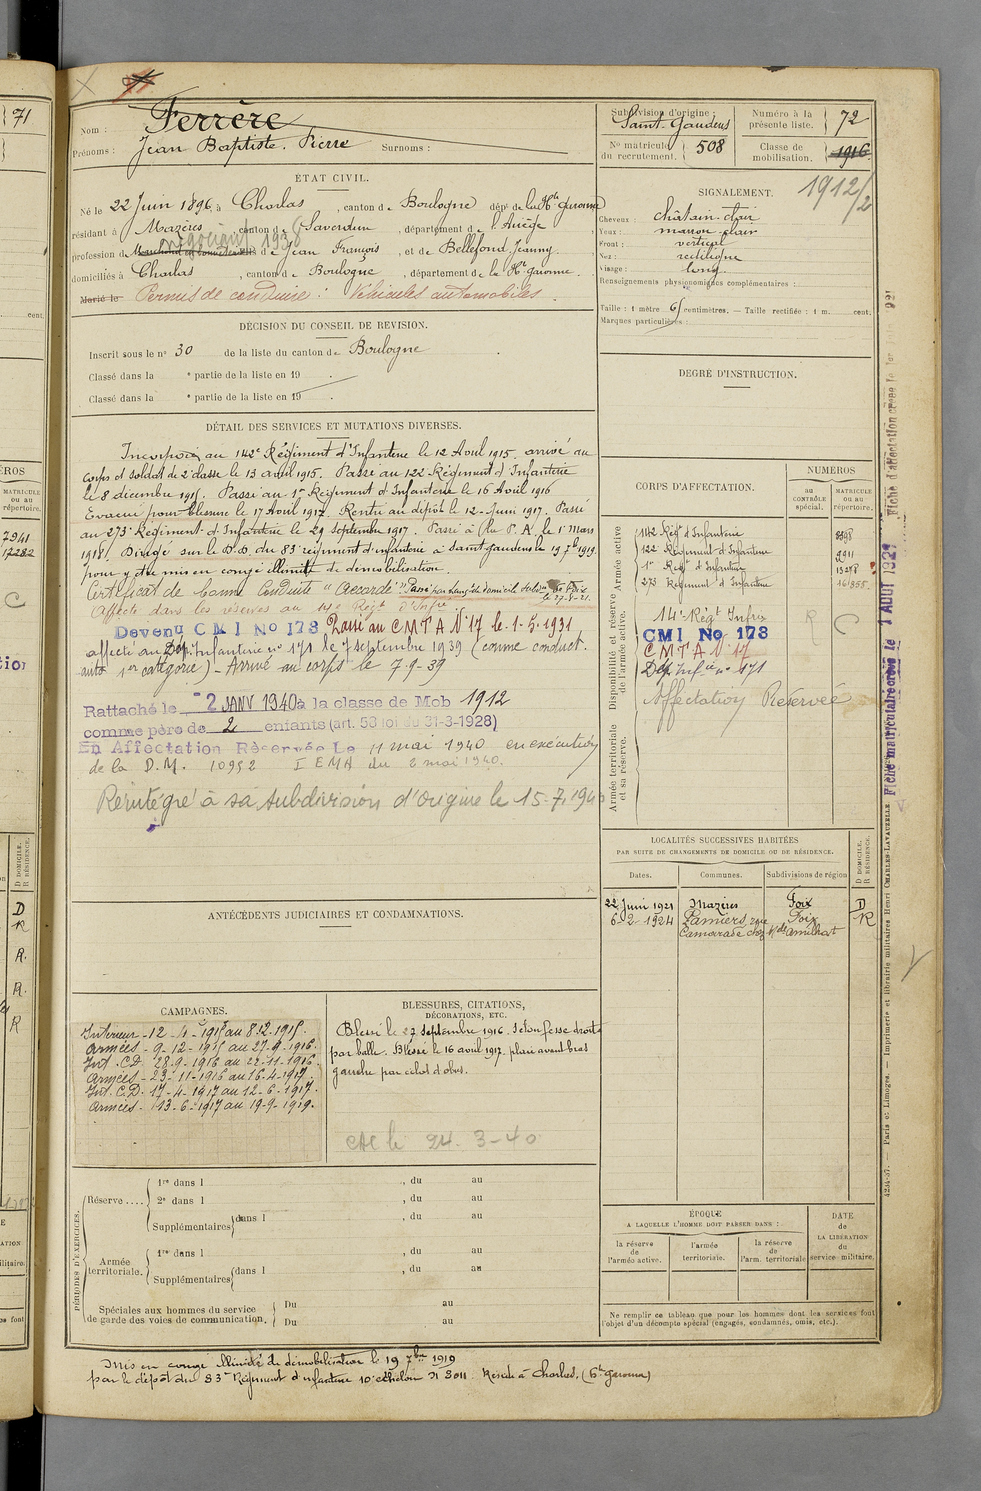 71
Nom : Ferrère
Prénoms : Jean Baptiste. Pierre Surnoms :
Subdivision d'origine : Saint-Gaudens
Nº matricule du recrutement. 508
Numéro à la présente liste. 72
Classe de mobilisation. 1916
1912/2
ÉTAT CIVIL.
Né le 22 Juin 1896, à Charlas, canton de Boulogne, dépt de la Hte Garonne
résidant à Mazères, canton de Saverdun, département de l'Ariège
négociant 1938
profession de, de Jean François, et de Bellefond Jeanny
domiciliés à Charlas, canton de Boulogne, département de la Hte Garonne.
Marié le Permis de conduire : Véhicules automobiles.
SIGNALEMENT.
Cheveux : châtain-clair
Yeux : marron clair
Front : vertical
Nez : rectiligne
Visage : long
Renseignements physionomiques complémentaires :
Taille : 1 mètre 65 centimètres. — Taille rectifiée : 1 m. cent.
Marques particulières :
DÉCISION DU CONSEIL DE REVISION.
Inscrit sous le nº 30 de la liste du canton de Boulogne
Classé dans la e partie de la liste en 19 .
Classé dans la e partie de la liste en 19 .
DEGRÉ D'INSTRUCTION.
DÉTAIL DES SERVICES ET MUTATIONS DIVERSES.
Incorporé au 142e Régiment d'Infanterie le 12 Avril 1915. arrivé au
corps et soldat de 2e classe le 13 avril 1915. Passé au 122 Régiment d'Infanterie
le 8 décembre 1915. Passé au 1er Régiment d'Infanterie le 16 Avril 1916
Evacué pour blessure le 17 Avril 1917. Rentré au dépôt le 12 Juin 1917. Passé
au 273e Régiment d'Infanterie le 29 septembre 1917. Passé à la P. A. le 1er Mars
1918. Dirigé sur le D.D. du 83e régiment d'infanterie à Saint Gaudens le 19 7bre 1919.
pour y être mis en congé illimité de démobilisation
Certificat de bonne Conduite "Accordé" Passé par chang. de domicile de Foix
le 27-8-21.
Affecté dans les réserves au 14e Régt d'Infie
Devenu CMI No 178 Passé au C M T A Nº 17 le 1-5-1931
affecté au Dép. Infanterie nº 171 le 7 septembre 1939 (comme conduct.
auto 1er catégorie) - Arrivé au corps le 7-9-39
Rattaché le -2 JANV 1940 à la classe de Mob 1912
comme père de 2 enfants (art. 58 loi du 31-3-1928)
En Affectation Réservée Le 11 mai 1940 en exécution
de la D.M. 10952 I EMA du 2 mai 1940.
Réintégré à sa subdivision d'origine le 15-7-1940
CORPS D'AFFECTATION.
NUMEROS
au CONTRÔLE spécial.
MATRICULE ou au répertoire.
Armée active
Disponibilité et réserve de l'armée active.
Armée territoriale et sa réserve.
142 Régt d'Infanterie 8898
122 Régiment d'Infanterie 9911
1er Régt d'Infanterie 13278
273 Régiment d'Infanterie 16355
14e Régt Infrie R C
CMI No 178
C M T A Nº 17
Dép. Infie nº 171
Affectation Réservée
LOCALITÉS SUCCESSIVES HABITÉES
PAR SUITE DE CHANGEMENTS DE DOMICILE OU DE RÉSIDENCE.
Dates. Communes. Subdivisions de région
D DOMICILE. R RÉSIDENCE.
22 Juin 1921 Mazères Foix D
6-2-1924 Pamiers, rue Foix R
Camarade chez Mde Amilhat
ANTÉCÉDENTS JUDICIAIRES ET CONDAMNATIONS.
CAMPAGNES.
Intérieur - 12-4-1915 au 8-12-1915.
Armées - 9-12-1915 au 27-9-1916.
Int. C.D. 28-9-1916 au 22-11-1916.
Armées - 23-11-1916 au 16-4-1917.
Int. C.D. 17-4-1917 au 12-6-1917.
Armées - 13-6-1917 au 19-9-1919.
BLESSURES, CITATIONS,
DÉCORATIONS, ETC.
Blessé le 27 septembre 1916. Séton fesse droite
par balle. Blessé le 16 avril 1917. plaie avant-bras
gauche par éclat d'obus.
CAC le 24-3-40
PÉRIODES D'EXERCICES.
Réserve.... 1re dans l , du au
2e dans l , du au
Supplémentaires dans l , du au
Armée territoriale. 1re dans l , du au
Supplémentaires dans l , du au
Spéciales aux hommes du service de garde des voies de communication. Du au
Du au
ÉPOQUE
A LAQUELLE L'HOMME DOIT PASSER DANS :
la réserve de l'armée active.
l'armée territoriale.
la réserve de l'arm. territoriale
DATE de LA LIBÉRATION du service militaire.
Ne remplir ce tableau que pour les hommes dont les services font
l'objet d'un décompte spécial (engagés, condamnés, omis, etc.).
Mis en congé illimité de démobilisation le 19 7bre 1919
par le dépôt du 83e Régiment d'infanterie 10e échelon N 3011. Réside à Charlas, (Hte Garonne)
Fiche matriculaire créée le 1 AOUT 1929
Fiche d'affectation créée le
4234-37. — Paris et Limoges. — Imprimerie et librairie militaires Henri CHARLES-LAVAUZELLE.
71
cent.
MATRICULE
ou au
répertoire.
7941
17282
C
D
R
R.
R.
R